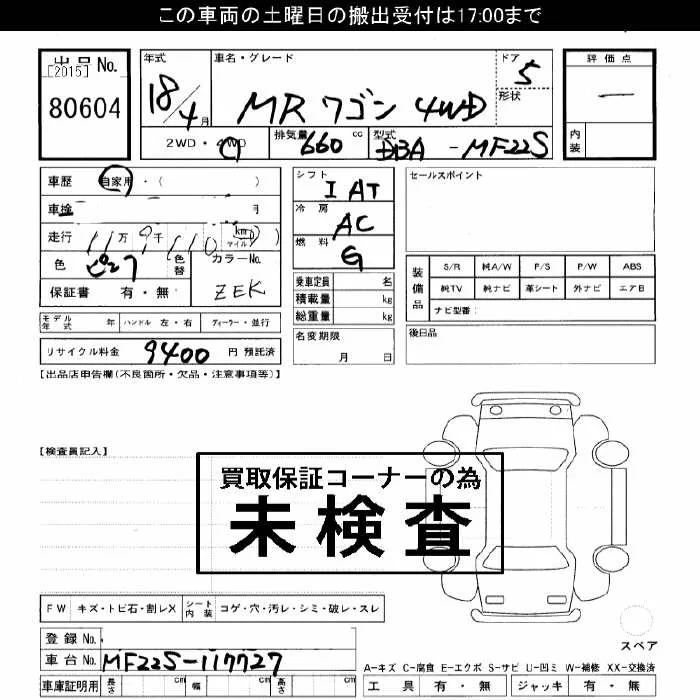 この車両の土曜日の搬出受付は17:00まで
出品No.
[2015]
80604
年式 18/4月
車名・グレード MRワゴン 4WD
ドア 5
形状
2WD・4WD
排気量 660 cc
型式 DBA-MF22S
評価点
―
内装
車歴 自家用・( )
車検 月
走行 11万9千110 (km マイル)
色 ピンク 色替
カラーNo. ZEK
保証書 有・無
シフト IAT
冷房 AC
燃料 G
乗車定員 名
積載量 kg
総重量 kg
名変期限
月 日
セールスポイント
装備品
S/R 純A/W P/S P/W ABS
純TV 純ナビ 革シート 外ナビ エアB
ナビ型番:
後日品
モデル年式 年 ハンドル 左・右 ディーラー・並行
リサイクル料金 9400 円 預託済
【出品店申告欄(不良箇所・欠品・注意事項等)】
【検査員記入】
買取保証コーナーの為
未検査
FW キズ・トビ石・割レX シート内装 コゲ・穴・汚レ・シミ・破レ・スレ
スペア
登録No.
車台No. MF22S-117727
車庫証明用 長さ cm 幅 cm 高さ cm
A-キズ C-腐食 E-エクボ S-サビ U-凹ミ W-補修 XX-交換済
工具 有・無 ジャッキ 有・無